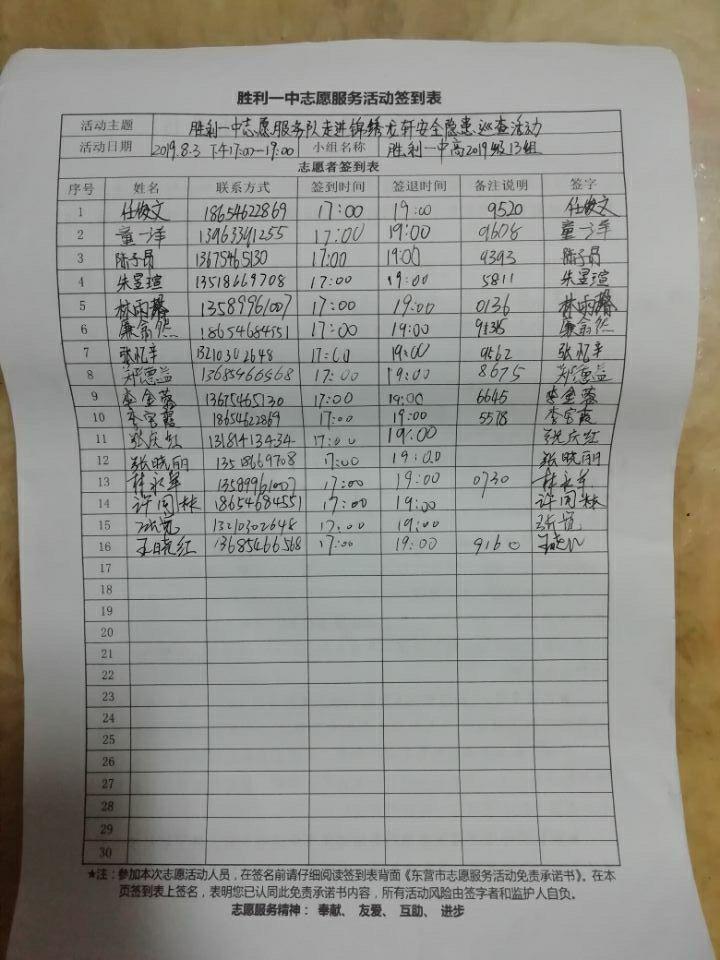 胜利一中志愿服务活动签到表
活动主题 胜利一中志愿服务队走进锦绣龙轩安全隐患巡查活动
活动日期 2019.8.3 下午17:00-19:00 小组名称 胜利一中高2019级13组
志愿者签到表
序号 姓名 联系方式 签到时间 签退时间 备注说明 签字
1 任俊文 18654622869 17:00 19:00 9520 任俊文
2 童一洋 13963391255 17:00 19:00 9608 童一洋
3 陈子昂 13675465130 17:00 19:00 9393 陈子昂
4 朱昱瑄 13518669708 17:00 19:00 5811 朱昱瑄
5 林雨馨 13589961007 17:00 19:00 0136 林雨馨
6 廉翕然 18654684551 17:00 19:00 廉翕然
7 13210302648 17:00 19:00 9562
8 郑德益 13685466568 17:00 19:00 8675 郑德益
9 李金蓉 13675465130 17:00 19:00 6645 李金蓉
10 李富霞 18654622869 17:00 19:00 5578 李富霞
11 张庆红 13181413434 17:00 19:00 张庆红
12 张晓丽 13518669708 17:00 19:00 张晓丽
13 林永军 13589961007 17:00 19:00 0730 林永军
14 许同林 18654684551 17:00 19:00 许同林
15 13210302648 17:00 19:00
16 王晓红 13685466568 17:00 19:00 9160 王晓红
17
18
19
20
21
22
23
24
25
26
27
28
29
30
★注：参加本次志愿活动人员，在签名前请仔细阅读签到表背面《东营市志愿服务活动免责承诺书》。在本
页签到表上签名，表明您已认同此免责承诺书内容，所有活动风险由签字者和监护人自负。
志愿服务精神： 奉献、 友爱、 互助、 进步